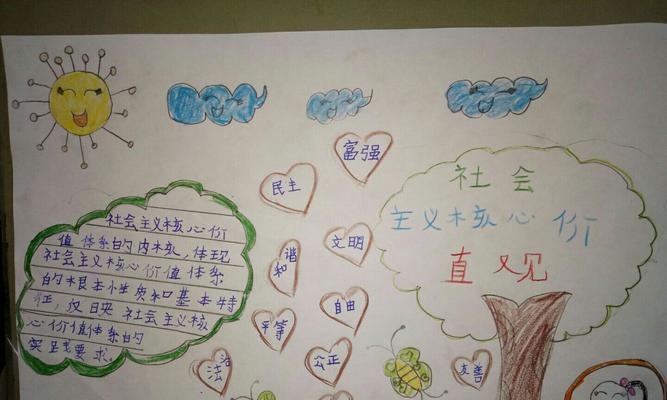 富强
民主
文明
和谐
自由
平等
公正
法治
友善
社会
主义核心价
直又见
社会主义核心价
值体系的内核，体现
社会主义核心价值体系
的根本性质和基本特
征，反映社会主义核
心价值体系的
实践要求。